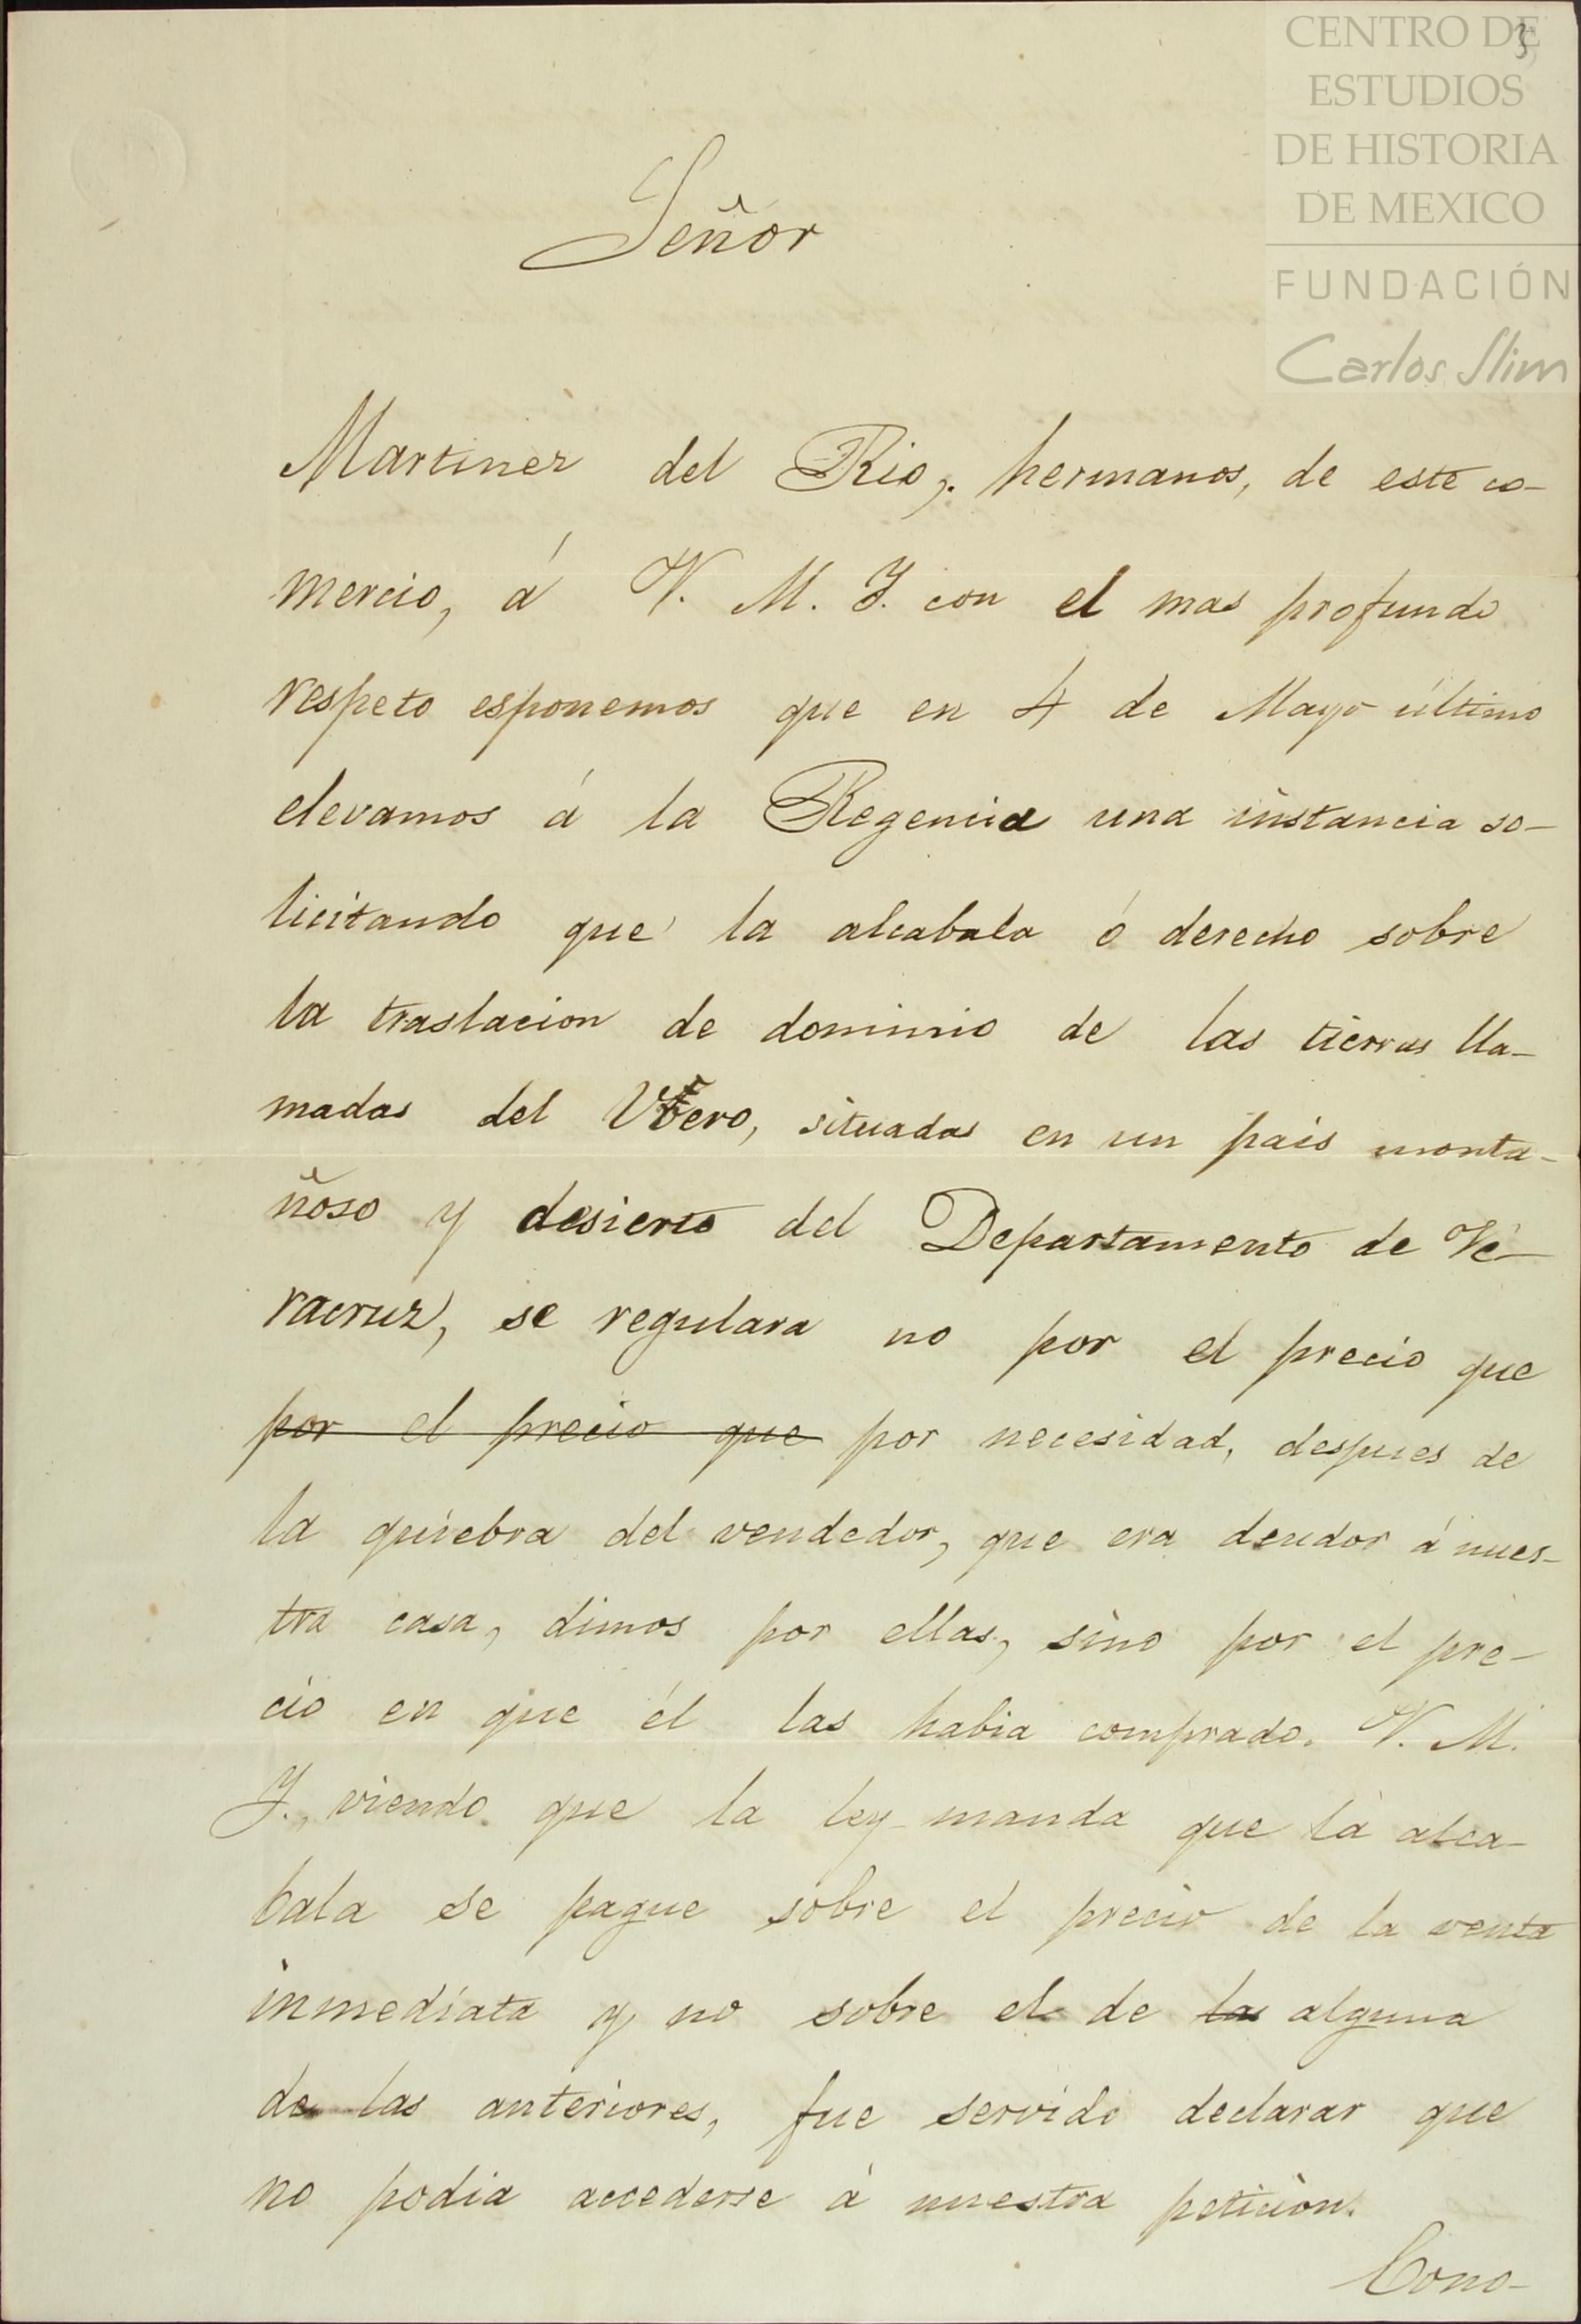 CENTRO DE
ESTUDIOS
DE HISTORIA
DE MEXICO
FUNDACIÓN
Carlos Slim
3
Señor
Martinez del Rio, hermanos, de este co-
mercio, á V. M. Y. con el mas profundo
respeto esponemos que en 4 de Mayo último
elevamos á la Regencia una instancia so-
licitando que la alcabala ó derecho sobre
la traslacion de dominio de las tierras lla-
madas del Uvero, situadas en un pais monta-
ñoso y desierto del Departamento de Ve-
racruz, se regulara no por el precio que
por el precio que por necesidad, despues de
la quiebra del vendedor, que era deudor á nues-
tra casa, dimos por ellas, sino por el pre-
cio en que él las habia comprado. V. M.
Y., viendo que la ley manda que la alca-
bala se pague sobre el precio de la venta
inmediata y no sobre el de las alguna
de las anteriores, fue servido declarar que
no podia accederse á nuestra peticion.
Cono-